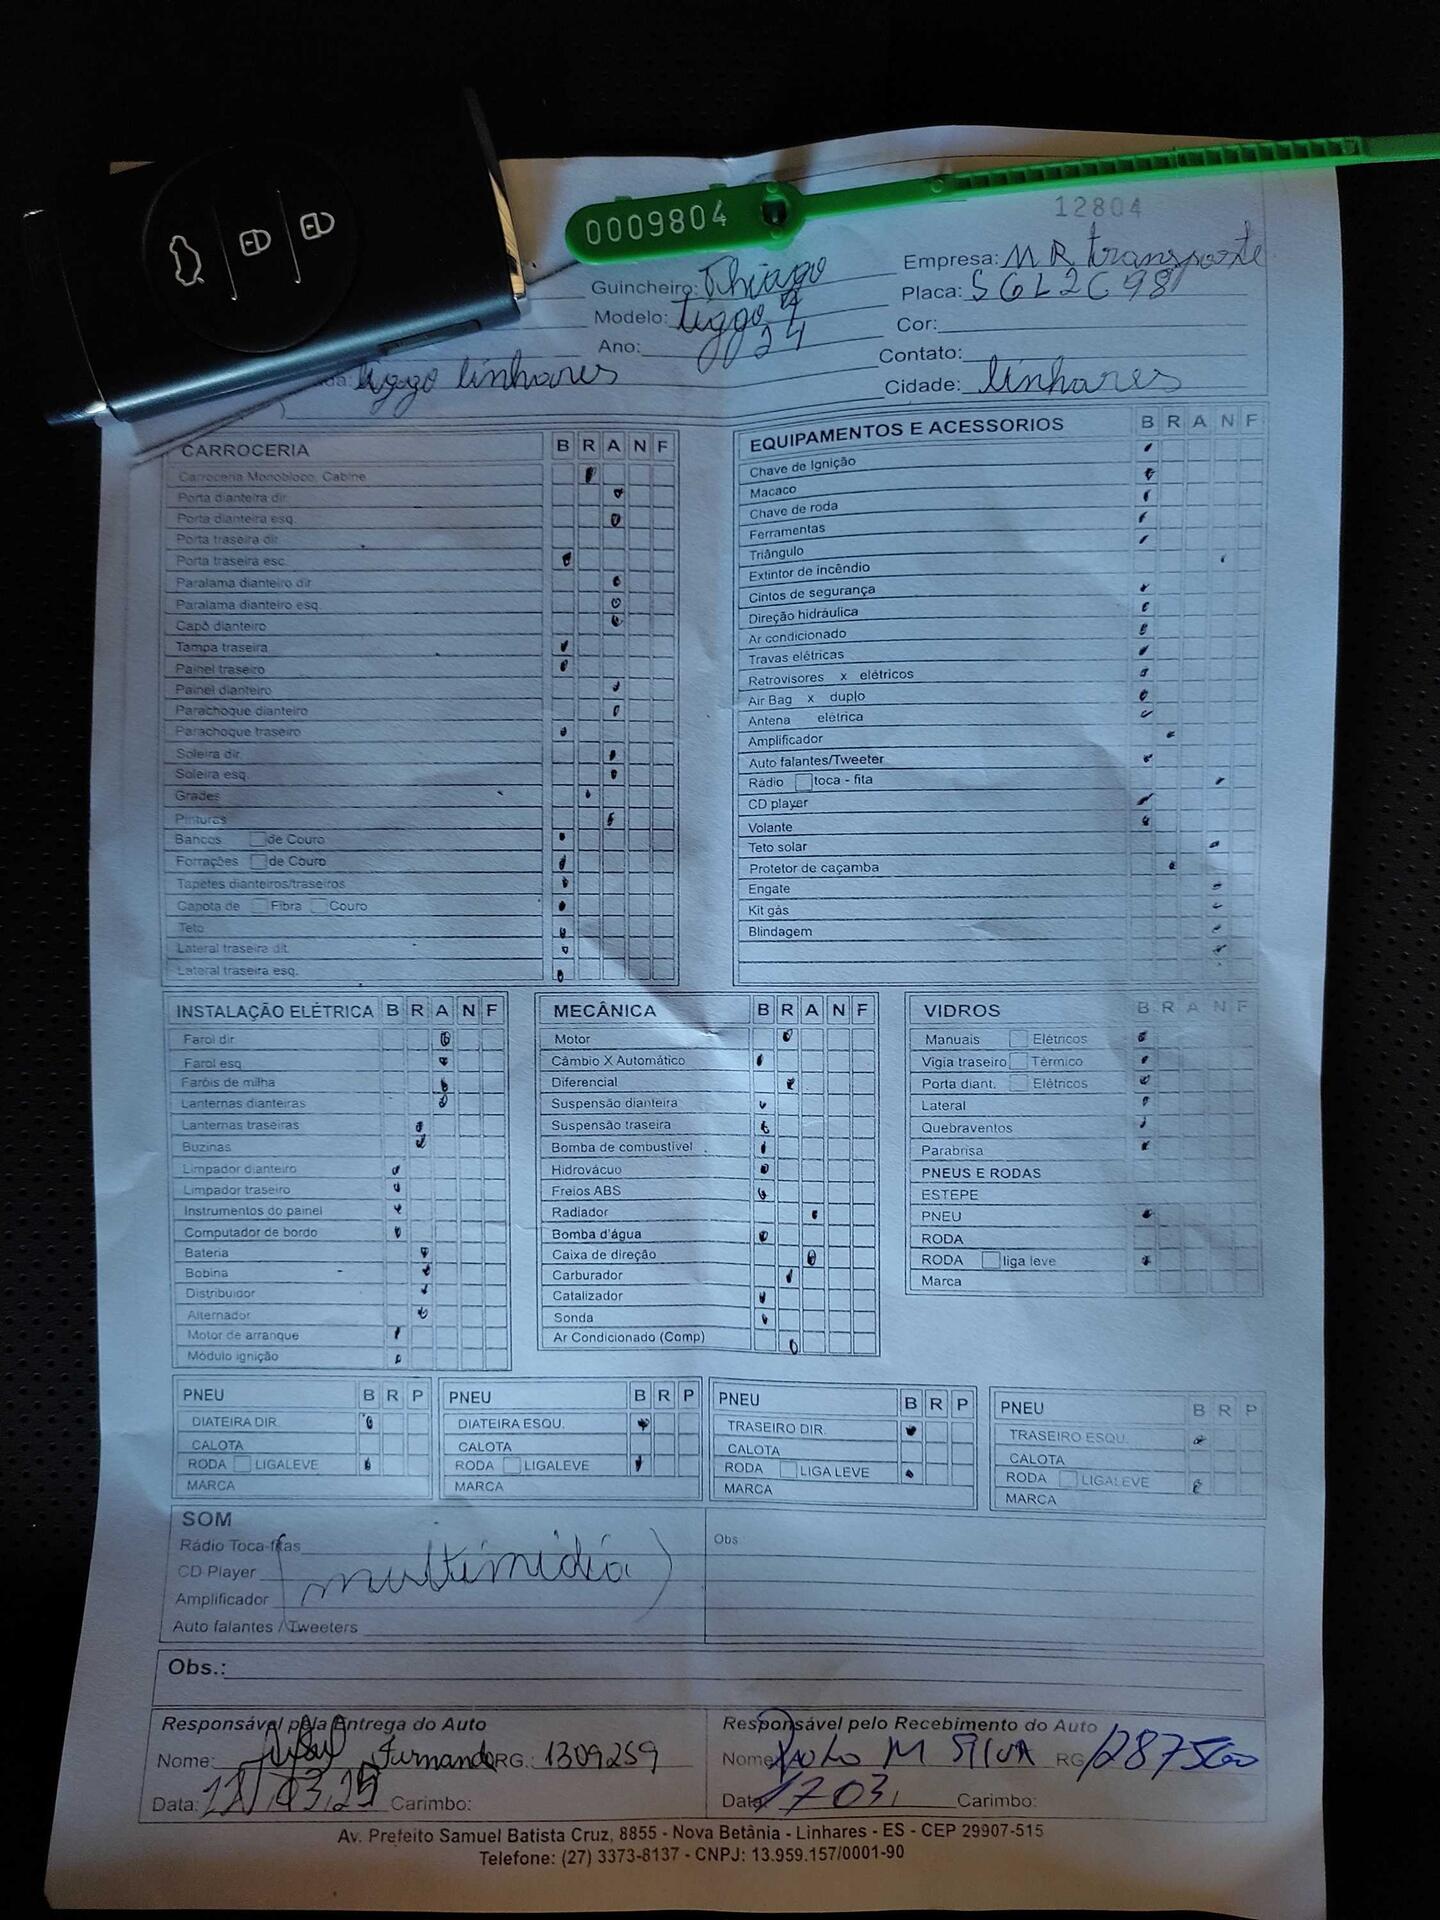 0009804
12804
Guincheiro: Thiago Empresa: MR transporte
Modelo: tiggo 7 Placa: SGL2C98
Ano: 24 Cor:
Contato:
tiggo linhares Cidade: linhares
CARROCERIA B R A N F
Carroceria Monobloco, Cabine
Porta dianteira dir.
Porta dianteira esq.
Porta traseira dir.
Porta traseira esc.
Paralama dianteiro dir
Paralama dianteiro esq.
Capô dianteiro
Tampa traseira
Painel traseiro
Painel dianteiro
Parachoque dianteiro
Parachoque traseiro
Soleira dir.
Soleira esq.
Grades
Pinturas
Bancos de Couro
Forrações de Couro
Tapetes dianteiros/traseiros
Capota de Fibra Couro
Teto
Lateral traseira dit.
Lateral traseira esq.
EQUIPAMENTOS E ACESSORIOS B R A N F
Chave de Ignição
Macaco
Chave de roda
Ferramentas
Triângulo
Extintor de incêndio
Cintos de segurança
Direção hidráulica
Ar condicionado
Travas elétricas
Retrovisores x elétricos
Air Bag x duplo
Antena elétrica
Amplificador
Auto falantes/Tweeter
Rádio toca - fita
CD player
Volante
Teto solar
Protetor de caçamba
Engate
Kit gás
Blindagem
INSTALAÇÃO ELÉTRICA B R A N F
Farol dir.
Farol esq
Faróis de milha
Lanternas dianteiras
Lanternas traseiras
Buzinas
Limpador dianteiro
Limpador traseiro
Instrumentos do painel
Computador de bordo
Bateria
Bobina
Distribuidor
Alternador
Motor de arranque
Módulo ignição
MECÂNICA B R A N F
Motor
Câmbio X Automático
Diferencial
Suspensão dianteira
Suspensão traseira
Bomba de combustível
Hidrovácuo
Freios ABS
Radiador
Bomba d'água
Caixa de direção
Carburador
Catalizador
Sonda
Ar Condicionado (Comp)
VIDROS B R A N F
Manuais Elétricos
Vigia traseiro Térmico
Porta diant. Elétricos
Lateral
Quebraventos
Parabrisa
PNEUS E RODAS
ESTEPE
PNEU
RODA
RODA liga leve
Marca
PNEU B R P
DIATEIRA DIR.
CALOTA
RODA LIGALEVE
MARCA
PNEU B R P
DIATEIRA ESQU.
CALOTA
RODA LIGALEVE
MARCA
PNEU B R P
TRASEIRO DIR.
CALOTA
RODA LIGA LEVE
MARCA
PNEU B R P
TRASEIRO ESQU.
CALOTA
RODA LIGALEVE
MARCA
SOM
Rádio Toca-fitas
CD Player (multimidia)
Amplificador
Auto falantes / Tweeters
Obs
Obs.:
Responsável pela Entrega do Auto
Nome: Fernando RG.: 1309259
Data: 17/03/25 Carimbo:
Responsável pelo Recebimento do Auto
Nome Paulo M SILVA RG 1287500
Data 17 03 Carimbo:
Av. Prefeito Samuel Batista Cruz, 8855 - Nova Betânia - Linhares - ES - CEP 29907-515
Telefone: (27) 3373-8137 - CNPJ: 13.959.157/0001-90